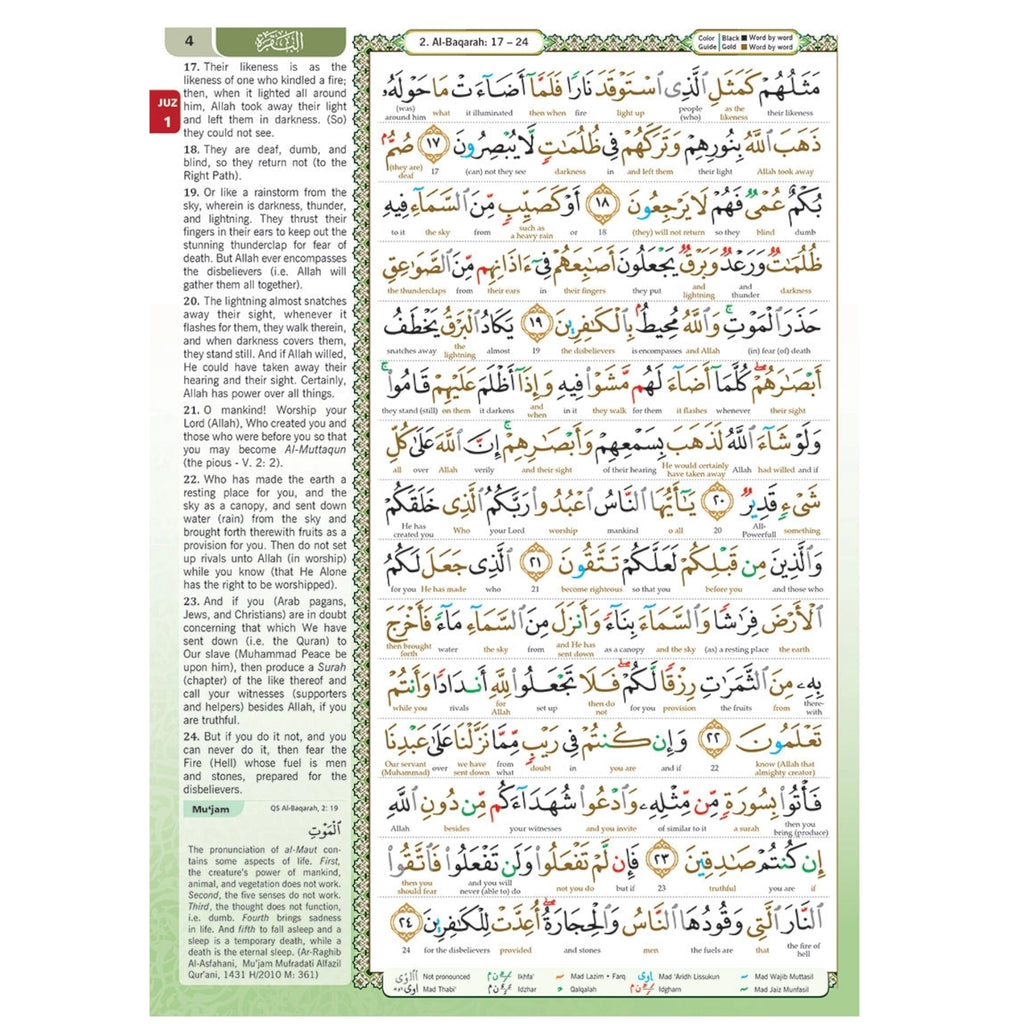 4
البقرة
2. Al-Baqarah: 17 – 24
Color Guide
Black Word by word
Gold Word by word
JUZ
1
17. Their likeness is as the
likeness of one who kindled a fire;
then, when it lighted all around
him, Allah took away their light
and left them in darkness. (So)
they could not see.
18. They are deaf, dumb, and
blind, so they return not (to the
Right Path).
19. Or like a rainstorm from the
sky, wherein is darkness, thunder,
and lightning. They thrust their
fingers in their ears to keep out the
stunning thunderclap for fear of
death. But Allah ever encompasses
the disbelievers (i.e. Allah will
gather them all together).
20. The lightning almost snatches
away their sight, whenever it
flashes for them, they walk therein,
and when darkness covers them,
they stand still. And if Allah willed,
He could have taken away their
hearing and their sight. Certainly,
Allah has power over all things.
21. O mankind! Worship your
Lord (Allah), Who created you and
those who were before you so that
you may become Al-Muttaqun
(the pious - V. 2: 2).
22. Who has made the earth a
resting place for you, and the
sky as a canopy, and sent down
water (rain) from the sky and
brought forth therewith fruits as a
provision for you. Then do not set
up rivals unto Allah (in worship)
while you know (that He Alone
has the right to be worshipped).
23. And if you (Arab pagans,
Jews, and Christians) are in doubt
concerning that which We have
sent down (i.e. the Quran) to
Our slave (Muhammad Peace be
upon him), then produce a Surah
(chapter) of the like thereof and
call your witnesses (supporters
and helpers) besides Allah, if you
are truthful.
24. But if you do it not, and you
can never do it, then fear the
Fire (Hell) whose fuel is men
and stones, prepared for the
disbelievers.
Mu'jam
QS Al-Baqarah, 2: 19
الْمَوْتِ
The pronunciation of al-Maut con-
tains some aspects of life. First,
the creature's power of mankind,
animal, and vegetation does not work.
Second, the five senses do not work.
Third, the thought does not function,
i.e. dumb. Fourth brings sadness
in life. And fifth to fall asleep and a
sleep is a temporary death, while a
death is the eternal sleep. (Ar-Raghib
Al-Asfahani, Mu'jam Mufradati Alfazil
Qur'ani, 1431 H/2010 M: 361)
مَثَلُهُمْ كَمَثَلِ الَّذِى اسْتَوْقَدَ نَارًا فَلَمَّآ أَضَآءَتْ مَا حَوْلَهُۥ
their likeness as the likeness people (who) light up fire then when it illuminated what (was) around him
ذَهَبَ اللَّهُ بِنُورِهِمْ وَتَرَكَهُمْ فِى ظُلُمَٰتٍ لَّا يُبْصِرُونَ ١٧ صُمٌّۢ
Allah took away their light and left them in darkness (can) not they see 17 (they are) deaf
بُكْمٌ عُمْىٌ فَهُمْ لَا يَرْجِعُونَ ١٨ أَوْ كَصَيِّبٍ مِّنَ السَّمَآءِ فِيهِ
dumb blind so they (they) will not return 18 or such as a heavy rain from the sky to it
ظُلُمَٰتٌ وَرَعْدٌ وَبَرْقٌ يَجْعَلُونَ أَصَٰبِعَهُمْ فِىٓ ءَاذَانِهِم مِّنَ الصَّوَٰعِقِ
darkness and thunder and lightning they put their fingers in their ears from the thunderclaps
حَذَرَ الْمَوْتِ ۚ وَاللَّهُ مُحِيطٌۢ بِالْكَٰفِرِينَ ١٩ يَكَادُ الْبَرْقُ يَخْطَفُ
(in) fear (of) death and Allah is encompasses the disbelievers 19 almost the lightning snatches away
أَبْصَٰرَهُمْ ۖ كُلَّمَآ أَضَآءَ لَهُم مَّشَوْا۟ فِيهِ وَإِذَآ أَظْلَمَ عَلَيْهِمْ قَامُوا۟ ۚ
their sight whenever it flashes for them they walk in it and when it darkens on them they stand (still)
وَلَوْ شَآءَ اللَّهُ لَذَهَبَ بِسَمْعِهِمْ وَأَبْصَٰرِهِمْ ۚ إِنَّ اللَّهَ عَلَىٰ كُلِّ
and if had willed Allah He would certainly have taken away of their hearing and their sight verily Allah over all
شَىْءٍ قَدِيرٌ ٢٠ يَٰٓأَيُّهَا النَّاسُ اعْبُدُوا۟ رَبَّكُمُ الَّذِى خَلَقَكُمْ
something All-Powerfull 20 o all mankind worship your Lord Who He has created you
وَالَّذِينَ مِن قَبْلِكُمْ لَعَلَّكُمْ تَتَّقُونَ ٢١ الَّذِى جَعَلَ لَكُمُ
and those who before you so that you become righteous 21 who He has made for you
الْأَرْضَ فِرَٰشًا وَالسَّمَآءَ بِنَآءً وَأَنزَلَ مِنَ السَّمَآءِ مَآءً فَأَخْرَجَ
the earth (as) a resting place and the sky as a canopy and He has sent down from the sky water then brought forth
بِهِۦ مِنَ الثَّمَرَٰتِ رِزْقًا لَّكُمْ ۖ فَلَا تَجْعَلُوا۟ لِلَّهِ أَندَادًا وَأَنتُمْ
there-with from the fruits provision for you then do not set up for Allah rivals while you
تَعْلَمُونَ ٢٢ وَإِن كُنتُمْ فِى رَيْبٍ مِّمَّا نَزَّلْنَا عَلَىٰ عَبْدِنَا
know (Allah that almighty creator) 22 and if you are in doubt from what we have sent down over Our servant (Muhammad)
فَأْتُوا۟ بِسُورَةٍ مِّن مِّثْلِهِۦ وَادْعُوا۟ شُهَدَآءَكُم مِّن دُونِ اللَّهِ
then you bring (produce) a surah of similar to it and you invite your witnesses besides Allah
إِن كُنتُمْ صَٰدِقِينَ ٢٣ فَإِن لَّمْ تَفْعَلُوا۟ وَلَن تَفْعَلُوا۟ فَاتَّقُوا۟
if you are truthful 23 but if not you do and you will never (able to) do then you should fear
النَّارَ الَّتِى وَقُودُهَا النَّاسُ وَالْحِجَارَةُ ۖ أُعِدَّتْ لِلْكَٰفِرِينَ ٢٤
the fire of hell that the fuels are men and stones provided for the disbelievers 24
Not pronounced Ikhfa' Mad Lazim • Farq Mad 'Aridh Lissukun Mad Wajib Muttasil
Mad Thabi' Idzhar Qalqalah Idgham Mad Jaiz Munfasil